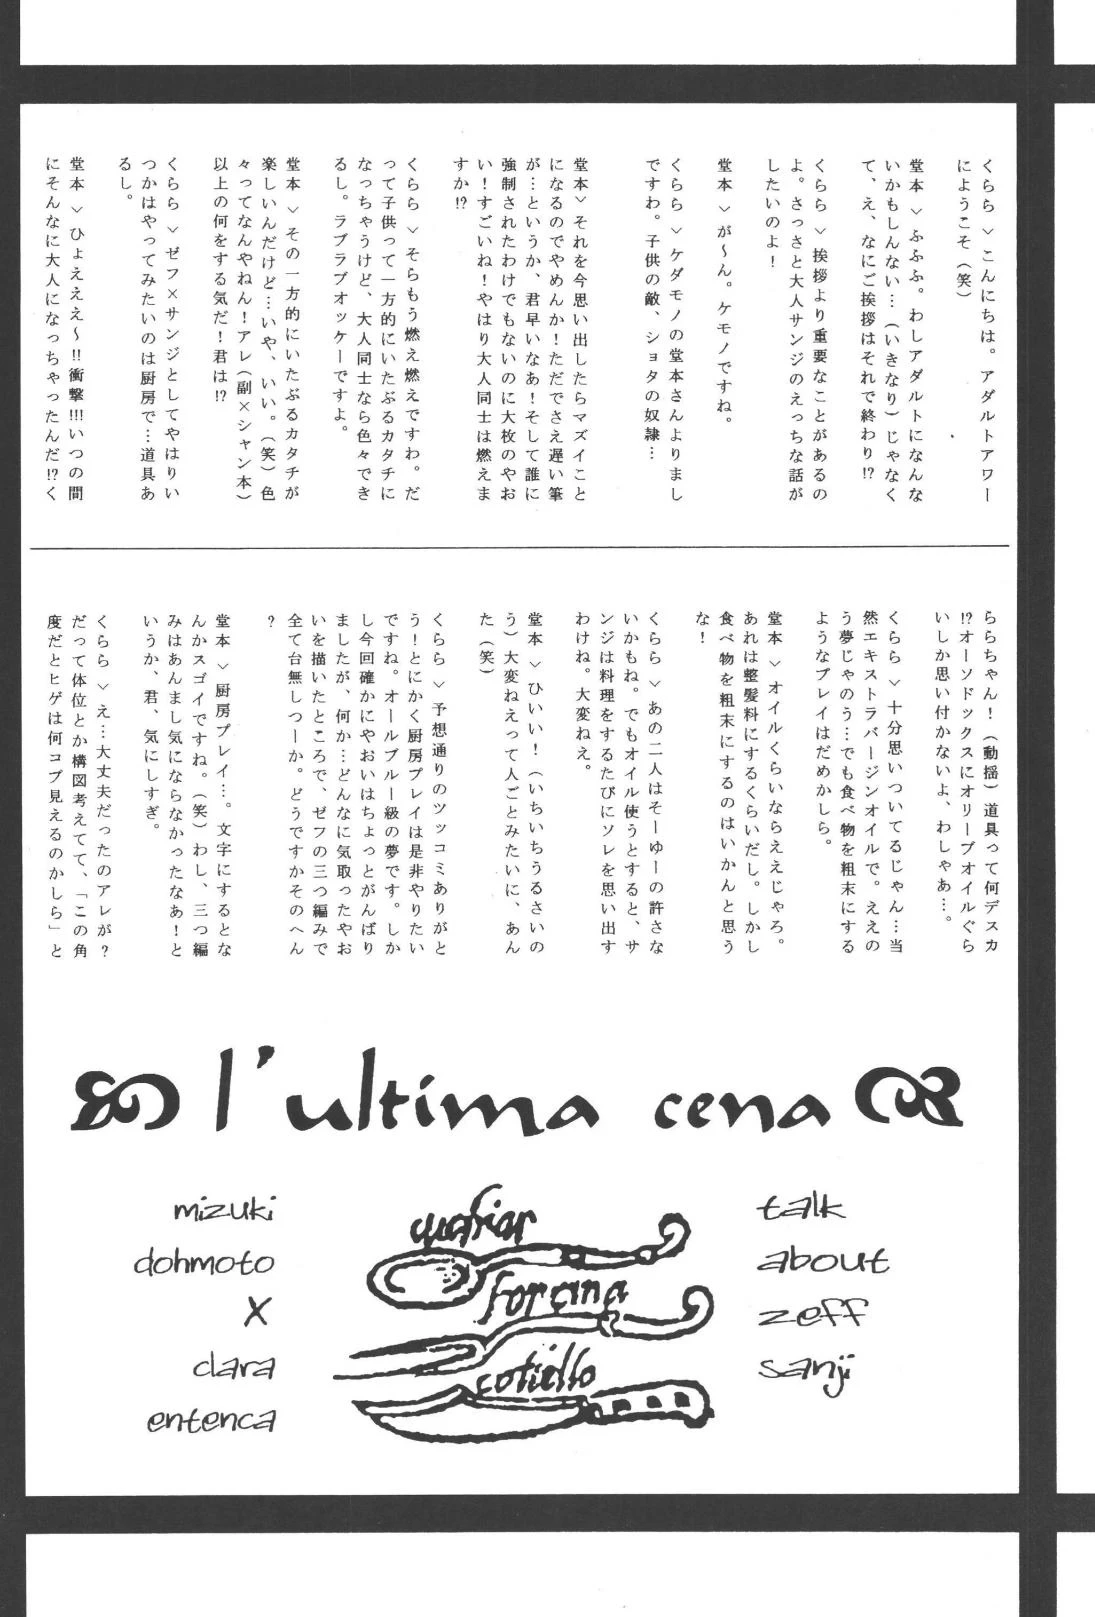 くらら ＞ こんにちは。アダルトアワー
にようこそ（笑）
堂本 ＞ ふふふ。わしアダルトになんな
いかもしんない…（いきなり）じゃなく
て、え、なにご挨拶はそれで終わり!?
くらら ＞ 挨拶より重要なことがあるの
よ。さっさと大人サンジのえっちな話が
したいのよ！
堂本 ＞ が〜ん。ケモノですね。
くらら ＞ ケダモノの堂本さんよりまし
ですわ。子供の敵、ショタの奴隷…
堂本＞ それを今思い出したらマズイこと
になるのでやめんか！ただでさえ遅い筆
が…というか、君早いなあ！そして誰に
強制されたわけでもないのに大枚のやお
い！すごいね！やはり大人同士は燃えま
すか!?
くらら ＞ そらもう燃え燃えですわ。だ
って子供って一方的にいたぶるカタチに
なっちゃうけど、大人同士なら色々でき
るし。ラブラブオッケーですよ。
堂本 ＞ その一方的にいたぶるカタチが
楽しいんだけど…いや、いい。（笑）色
々ってなんやねん！アレ（副×シャン本）
以上の何をする気だ！君は!?
くらら ＞ ゼフ×サンジとしてやはりい
つかはやってみたいのは厨房で…道具あ
るし。
堂本 ＞ ひょえええ〜!!衝撃!!!いつの間
にそんなに大人になっちゃったんだ!?く
ららちゃん！（動揺）道具って何デスカ
!?オーソドックスにオリーブオイルぐら
いしか思い付かないよ、わしゃあ…。
くらら ＞ 十分思いついてるじゃん…当
然エキストラバージンオイルで。ええの
う夢じゃのう…でも食べ物を粗末にする
ようなプレイはだめかしら。
堂本 ＞ オイルくらいならええじゃろ。
あれは整髪料にするくらいだし。しかし
食べ物を粗末にするのはいかんと思う
な！
くらら ＞ あの二人はそーゆーの許さな
いかもね。でもオイル使うとすると、サ
ンジは料理をするたびにソレを思い出す
わけね。大変ねえ。
堂本 ＞ ひいい！（いちいちうるさいの
う）大変ねえって人ごとみたいに、あん
た（笑）
くらら ＞ 予想通りのツッコミありがと
う！とにかく厨房プレイは是非やりたい
ですね。オールブルー級の夢です。しか
し今回確かにやおいはちょっとがんばり
ましたが、何か…どんなに気取ったやお
いを描いたところで、ゼフの三つ編みで
全て台無しつーか。どうですかそのへん
?
堂本 ＞ 厨房プレイ…。文字にするとな
んかスゴイですね。（笑）わし、三つ編
みはあんまし気にならなかったなあ！と
いうか、君、気にしすぎ。
くらら ＞ え…大丈夫だったのアレが？
だって体位とか構図考えてて、「この角
度だとヒゲは何コブ見えるのかしら」と
l'ultima cena
mizuki
dohmoto
X
clara
entenca
forcina
coltello
talk
about
zeff
sanji